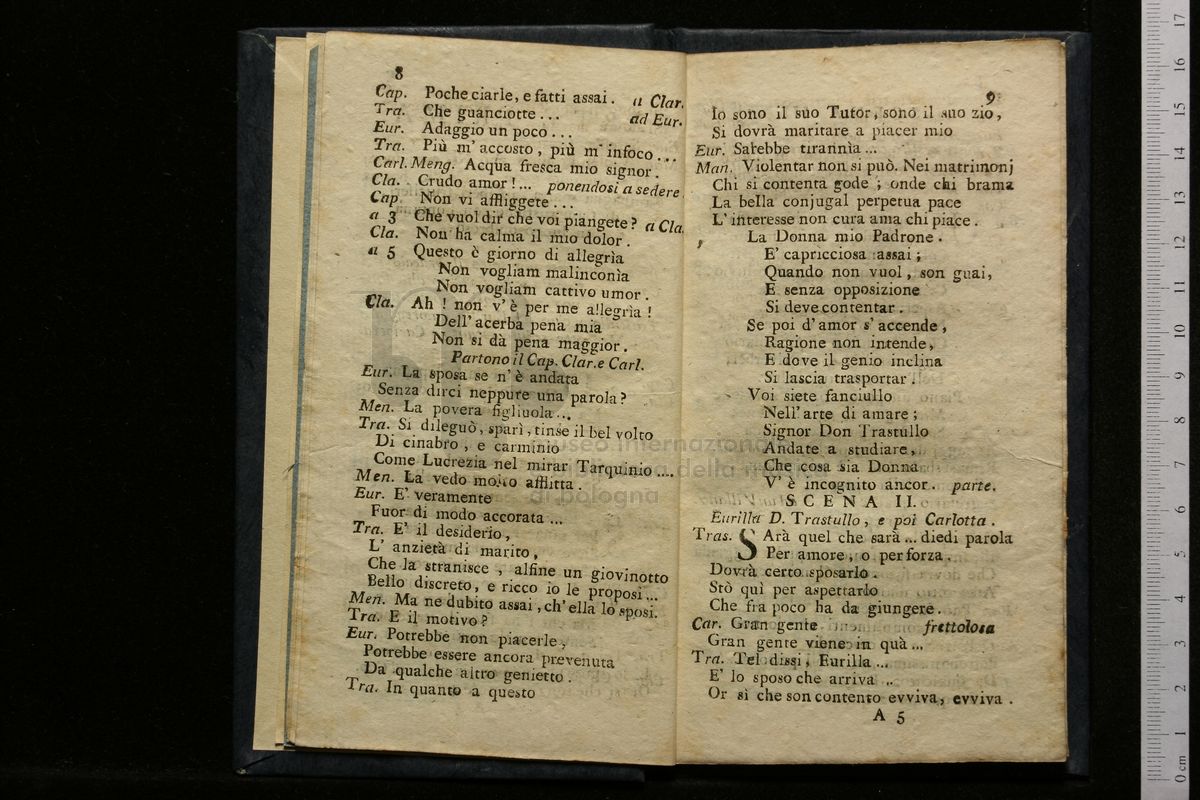 8
Cap. Poche ciarle, e fatti assai. a Clar.
Tra. Che guanciotte... ad Eur.
Eur. Adaggio un poco...
Tra. Più m'accosto, più m'infoco...
Carl. Meng. Acqua fresca mio signor.
Cla. Crudo amor!... ponendosi a sedere
Cap. Non vi affliggete...
a 3 Che vuol dir che voi piangete? a Cla.
Cla. Non ha calma il mio dolor.
a 5 Questo è giorno di allegrìa
Non vogliam malinconìa
Non vogliam cattivo umor.
Cla. Ah! non v'è per me allegrìa!
Dell'acerba pena mia
Non si dà pena maggior.
Partono il Cap. Clar. e Carl.
Eur. La sposa se n'è andata
Senza dirci neppure una parola?
Men. La povera figliuola...
Tra. Si dileguò, sparì, tinse il bel volto
Di cinabro, e carminio
Come Lucrezia nel mirar Tarquinio....
Men. La vedo molto afflitta.
Eur. E' veramente
Fuor di modo accorata...
Tra. E' il desiderio,
L' anzietà di marito,
Che la stranisce, alfine un giovinotto
Bello discreto, e ricco io le proposi...
Men. Ma ne dubito assai, ch'ella lo sposi.
Tra. E il motivo?
Eur. Potrebbe non piacerle,
Potrebbe essere ancora prevenuta
Da qualche altro genietto.
Tra. In quanto a questo
9
Io sono il suo Tutor, sono il suo zio,
Si dovrà maritare a piacer mio
Eur. Sarebbe tirannìa...
Man. Violentar non si può. Nei matrimonj
Chi si contenta gode; onde chi brama
La bella conjugal perpetua pace
L'interesse non cura ama chi piace.
La Donna mio Padrone.
E' capricciosa assai;
Quando non vuol, son guai,
E senza opposizione
Si deve contentar.
Se poi d'amor s'accende,
Ragione non intende,
E dove il genio inclina
Si lascia trasportar.
Voi siete fanciullo
Nell'arte di amare;
Signor Don Trastullo
Andate a studiare,
Che cosa sia Donna
V'è incognito ancor. parte.
SCENA II.
Eurilla D. Trastullo, e poi Carlotta.
Tras. SArà quel che sarà... diedi parola
Per amore, o per forza.
Dovrà certo sposarlo.
Stò quì per aspettarlo
Che fra poco ha da giungere.
Car. Gran gente frettolosa
Gran gente viene in quà...
Tra. Tel dissi, Eurilla...
E' lo sposo che arriva...
Or sì che son contento evviva, evviva.
A 5
museo internazionale
e biblioteca della musica
di bologna
0 cm 1 2 3 4 5 6 7 8 9 10 11 12 13 14 15 16 17